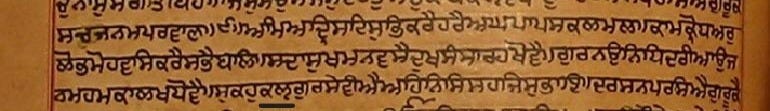 ਸਚੁਜਨਮਪਰਵਾਣੁ॥੯॥ਅਮਿਅਦ੍ਰਿਸਟਿਸੁਭਿਕਰੈਹਰੈਅਘਪਾਪਸਕਲਮਲ॥ਕਾਮਕ੍ਰੋਧਅਰੁ
ਲੋਭਮੋਹਵਸਿਕਰੈਸਭੈਬਲਿ॥ਸਦਾਸੁਖਮਨਵਸੈਦੁਖਸੰਸਾਰਹਖੋਵੈ॥ਗੁਰਨਉਨਿਧਿਦਰੀਆਉਜ
ਨਮਹਮਕਾਲਖਧੋਵੈ॥ਸੁਕਹੁਕਲੵਗੁਰਸੇਵੀਐਅਹਿਨਿਸਿਸਹਜਿਸੁਭਾਇ॥ਦਰਸਨਪਰਸਿਐਗੁਰੂਕੈ